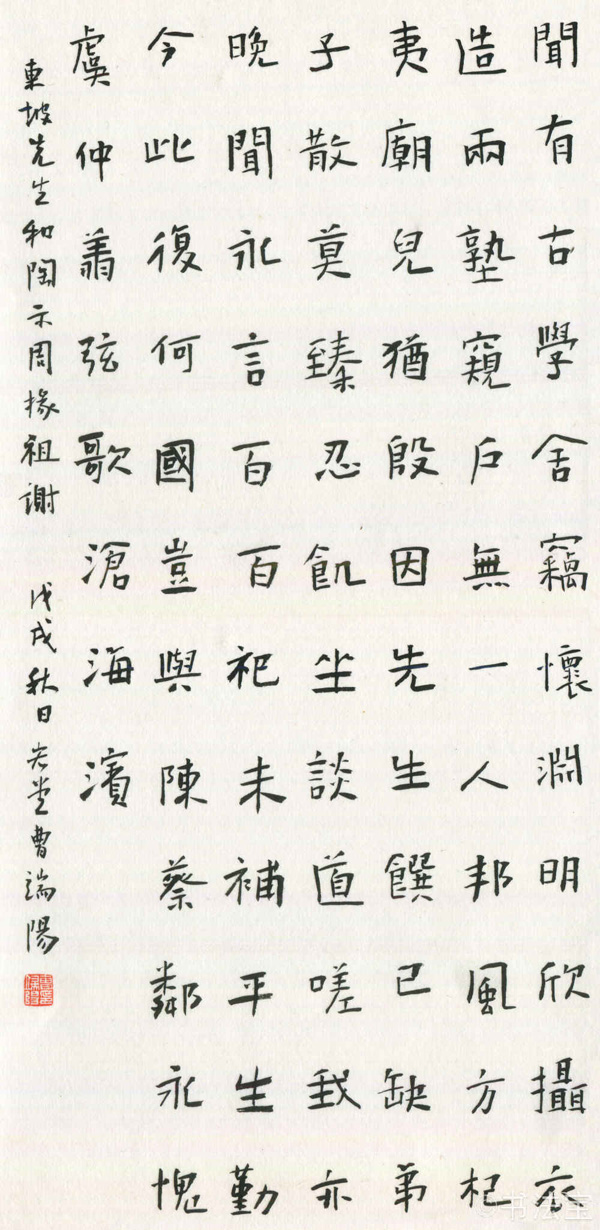 聞有古學舍竊懷淵明欣攝衣
造兩塾窺戶無一人邦風方杞
夷廟皃猶殷因先生饌已缺弟
子散莫臻忍飢坐談道嗟我亦
晚聞永言百百祀未補平生勤
今此復何國豈與陳蔡鄰永愧
虞仲翔弦歌滄海濱
東坡先生和陶示周掾祖謝 戊戌秋日 曹端陽
书法宝